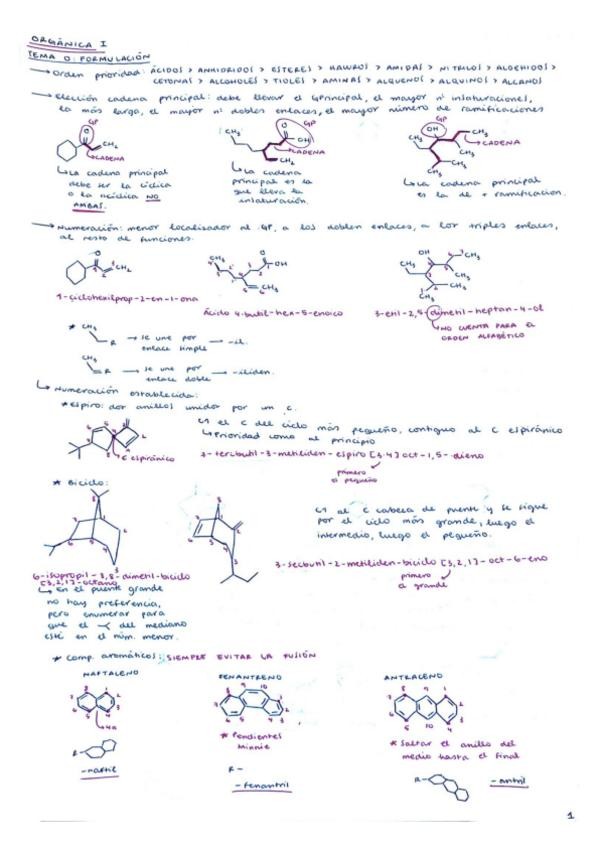 ORGÁNICA I
TEMA 0: FORMULACIÓN
→ Orden prioridad: ÁCIDOS > ANHIDRIDOS > ESTERES > HALUROS > AMIDAS > NITRILOS > ALDEHIDOS >
CETONAS > ALCOHOLES > TIOLES > AMINAS > ALQUENOS > ALQUINOS > ALCANOS
→ Elección cadena principal: debe llevar el GPrincipal, el mayor nº insaturaciones,
la más larga, el mayor nº dobles enlaces, el mayor número de ramificaciones
GP
O
CH₂
CADENA
La cadena principal
debe ser la cíclica
o la acíclica NO
AMBAS.
GP
CH₃
O
OH
CADENA
CH₂
La cadena
principal es la
que lleva la
insaturación.
GP
OH
CH₃
CADENA
CH₃
CH₃
CH₃
CH₃
La cadena principal
es la de + ramificación.
→ Numeración: menor localizador al GP, a los dobles enlaces, a los triples enlaces,
al resto de funciones.
1-ciclohexilprop-2-en-1-ona
Ácido 4-butil-hex-5-enoico
3-etil-2,5-dimetil-heptan-4-ol
NO CUENTA PARA EL
ORDEN ALFABÉTICO
* CH₃ R → se une por
enlace simple → -il.
CH₂ R → se une por
enlace doble → -iliden.
Numeración establecida:
* Espiro: dos anillos unidos por un C.
C espiránico
el C del ciclo más pequeño, contiguo al C espiránico
Prioridad como al principio
7-tercbutil-3-metiliden-espiro [3,4] oct-1,5-dieno
primero
el pequeño
* Biciclo:
6-isopropil-3,8-dimetil-biciclo
[3,2,1]-octano
En el puente grande
no hay preferencia,
pero enumerar para
que el del mediano
esté en el núm. menor.
al C cabeza de puente y se sigue
por el ciclo más grande, luego el
intermedio, luego el pequeño.
3-secbutil-2-metiliden-biciclo [3,2,1]-oct-6-eno
primero
el grande
* Comp. aromáticos: SIEMPRE EVITAR LA FUSIÓN
NAFTALENO
4a
-naftil
FENANTRENO
* Pendientes
Minnie
R-
-fenantril
ANTRACENO
* Saltar el anillo del
medio hasta el final
R-
-antril
1